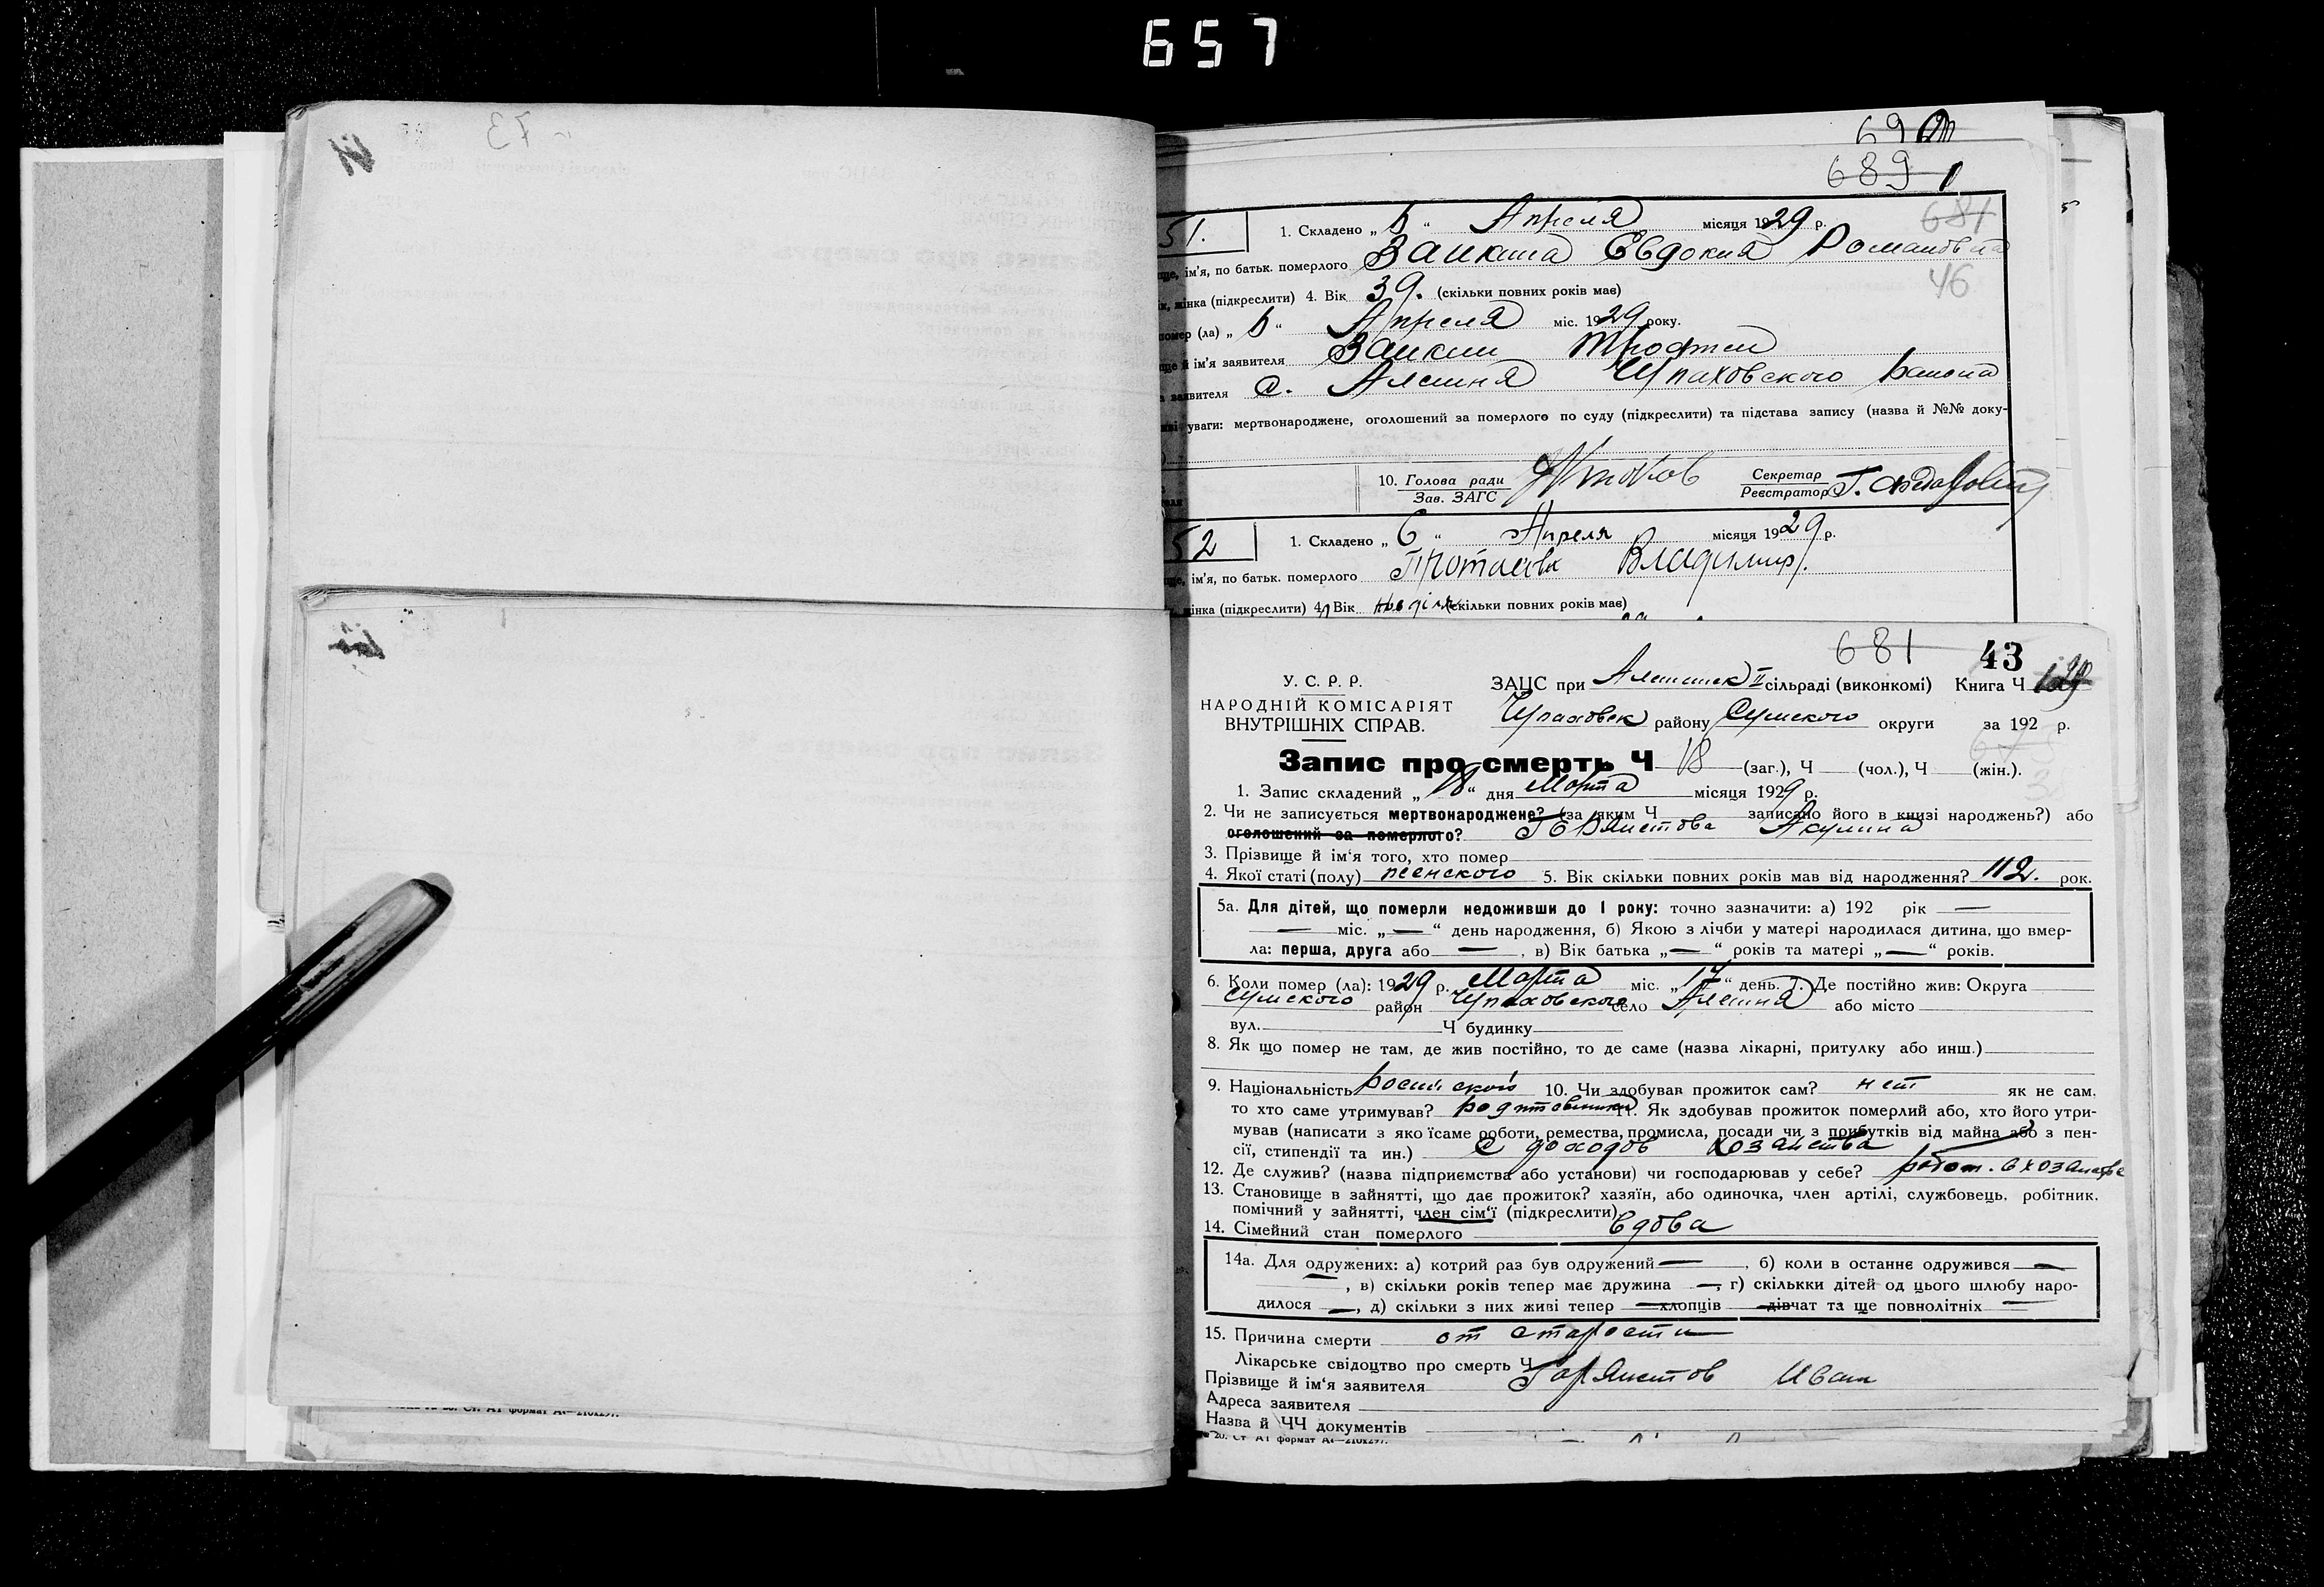 657
692
689 1
51.
1. Складено „ 6 “ Апреля місяця 1929 р.
681
ім'я, по батьк. померлого Заикина Евдокия Романовна
46
жінка (підкреслити) 4. Вік 39. (скільки повних років має)
помер (ла) „ 6 “ Апреля міс. 1929 року.
ім'я заявителя Заикин Трофим
заявителя С. Алешня Чупаховского района
уваги: мертвонароджене, оголошений за померлого по суду (підкреслити) та підстава запису (назва й №№ доку-
10. Голова ради
Зав. ЗАГС
Секретар
Реєстратор
52
1. Складено „ 6 “ Апреля місяця 1929 р.
ім'я, по батьк. померлого Владимир.
жінка (підкреслити) 4. Вік (скільки повних років має)
681 43
У. С. Р. Р.
НАРОДНІЙ КОМІСАРІЯТ
ВНУТРІШНІХ СПРАВ.
ЗАЦС при Алешнск II сільраді (виконкомі) Книга Ч
Чупаховск району Сумского округи за 192 р.
Запис про смерть Ч 18 (заг.), Ч (чол.), Ч (жін.).
1. Запис складений „ 18 “ дня Марта місяця 1929 р.
2. Чи не записується мертвонароджене? (за яким Ч записано його в книзі народжень?) або
оголошений за померлого? Акулина
3. Прізвище й ім‘я того, хто помер
4. Якої статі (полу) женского 5. Вік скільки повних років мав від народження? 112. рок.
5а. Для дітей, що померли недоживши до 1 року: точно зазначити: а) 192 рік —
— міс. „—“ день народження, б) Якою з лічби у матері народилася дитина, що вмер-
ла: перша, друга або —, в) Вік батька „—“ років та матері „—“ років.
6. Коли помер (ла): 1929 р. Марта міс. „17“ день. 7. Де постійно жив: Округа
Сумского район Чупаховского село Алешня або місто
вул. Ч будинку
8. Як що помер не там, де жив постійно, то де саме (назва лікарні, притулку або инш.)
9. Національність 10. Чи здобував прожиток сам? нет як не сам,
то хто саме утримував? родственники. Як здобував прожиток померлий або, хто його утри-
мував (написати з яко їсаме роботи, ремества, промисла, посади чи з прибутків від майна або з пен-
сії, стипендії та ин.) С доходов хозяйства
12. Де служив? (назва підприємства або установи) чи господарював у себе? работ. в хозяйстве
13. Становище в зайнятті, що дає прожиток? хазяїн, або одиночка, член артілі, службовець, робітник,
помічний у зайнятті, член сім‘ї (підкреслити)
14. Сімейний стан померлого вдова
14а. Для одружених: а) котрий раз був одружений —, б) коли в останнє одружився —
—, в) скільки років тепер має дружина —, г) скількки дітей од цього шлюбу наро-
дилося —, д) скільки з них живі тепер — хлопців — дівчат та ще повнолітніх —
15. Причина смерти от старости
Лікарське свідоцтво про смерть Ч
Прізвище й ім‘я заявителя Иван
Адреса заявителя
Назва й ЧЧ документів